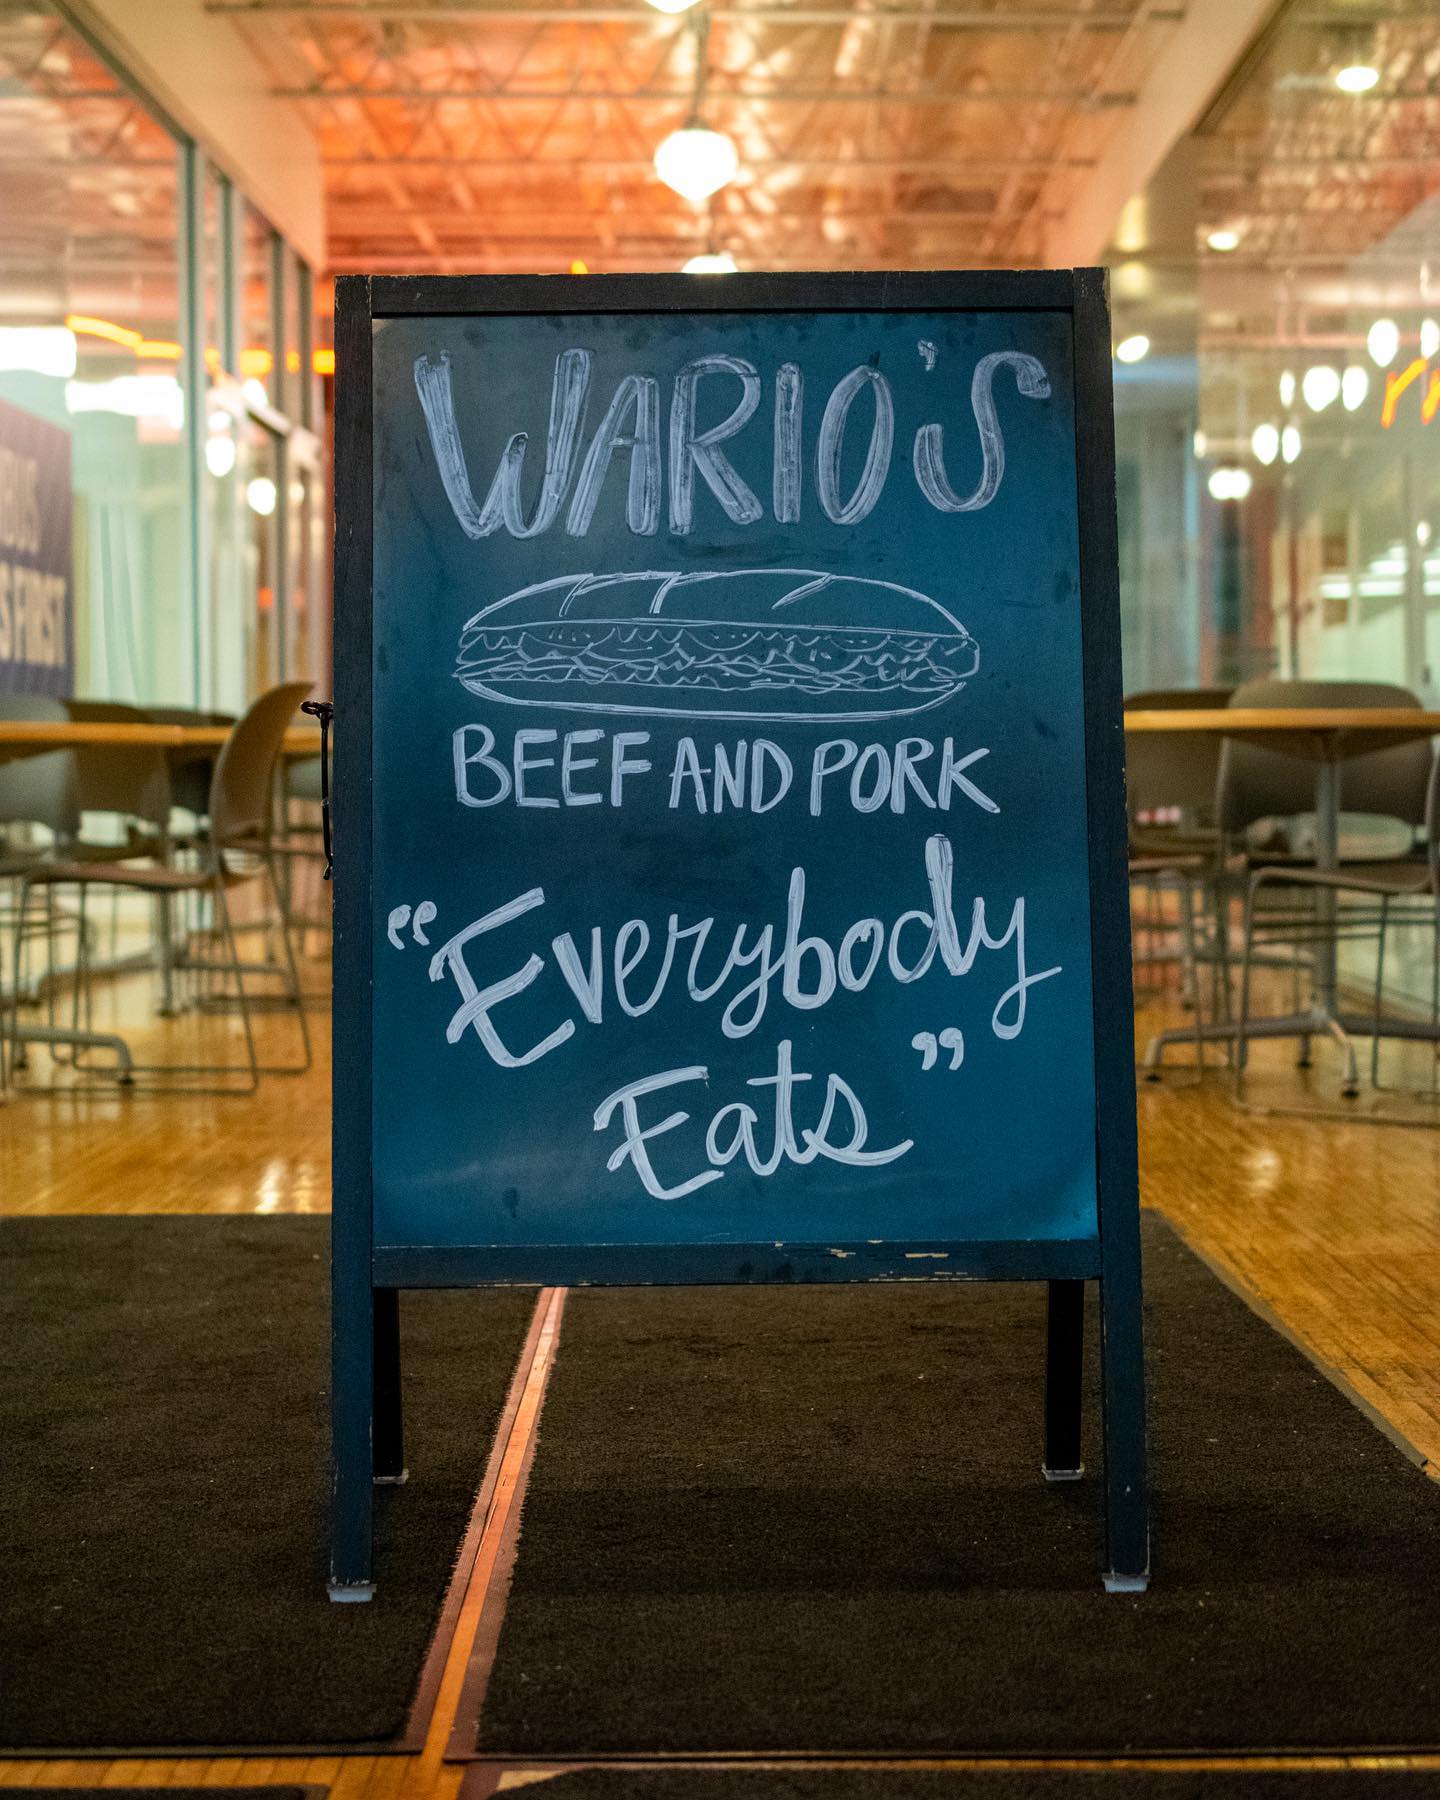 WARIO'S
BEEF AND PORK
“Everybody
Eats”
FIRST